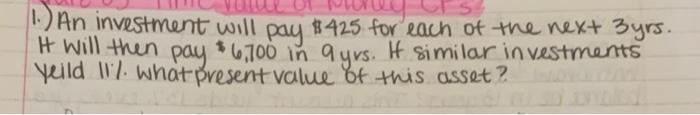 Time Value of Money CPS
1.) An investment will pay $425 for each of the next 3yrs.
It will then pay $6,700 in 9yrs. If similar investments
Yeild 11%. what present value of this asset?